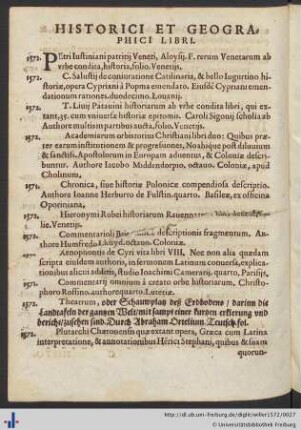 HISTORICI ET GEOGRA-
PHICI LIBRI.
1572. PEtri Iustiniani patritij Veneti, Aloysij. F. rerum Venetarum ab
vrbe condita, historia, folio. Venetijs.
1572. C. Salustij de coniuratione Catilinaria, & bello Iugurtino hi-
storiæ, opera Cypriani à Popma emendato. Eiusdē Cypriani emen-
dationem rationes. duodecimo. Louanij.
1572. T. Liuij Patauini historiarum ab vrbe condita libri, qui ex-
tant, 35. cum vniuersæ historiæ epitomis. Caroli Sigonij scholia ab
Authore multis in partibus aucta, folio. Venetijs.
1572. Academiarum orbis totius Christiani libri duo: Quibus præ-
ter earum institutionem & progressiones, Noahique post diluuium
& sanctiss. Apostolorum in Europam aduentus, & Coloniæ descri-
buntur. Authore Iacobo Middendorpio, octauo. Coloniæ, apud
Cholinum.
1571. Chronica, siue historiæ Polonicæ compendiosa descriptio.
Authore Ioanne Herburto de Fulstin. quarto. Basileæ, ex officina
Oporiniana.
1572. Hieronymi Rubei historiarum Rauenn
lio. Venetijs.
1572. Commentarioli descriptionis fragmentum. Au-
thore Humfredo Lhuyd. octauo. Coloniæ.
1572. Xenophontis de Cyri vita libri VIII. Nec non alia quædam
scripta eiusdem authoris, in sermonem Latinum conuersa, explica-
tionibus alicui additis, studio Ioachimi Camerarij. quarto, Parisijs.
1572. Commentarij omnium à creato orbe historiarum, Christo-
phoro Ruffino. authore quarto. Lutetiæ.
1572. Theatrum, oder Schauwplatz deß Erdbodens / darinn die
Landtafeln der gantzen Welt / mit sampt einer kurtzen erklerung vnd
bericht / zusehen sind. Durch Abraham Ortelium Teutsch. fol.
1572. Plutarchi Chæronensis quæ extant opera, Græca cum Latina
interpretatione, & annotationibus Hērici Stephani, quibus & suam
quorun-
http://dl.ub.uni-freiburg.de/diglit/willer1572/0027
© Universitätsbibliothek Freiburg